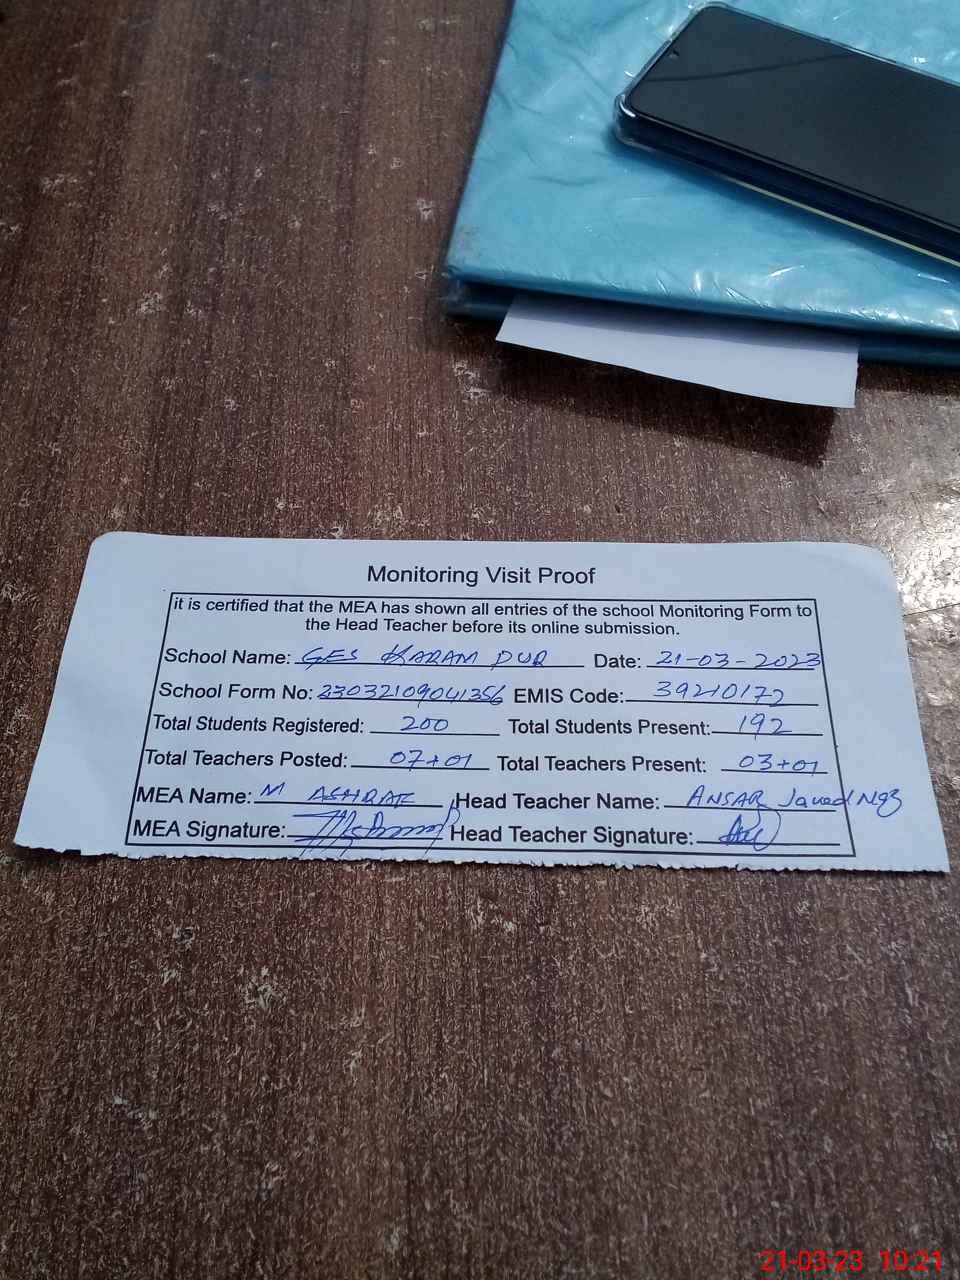 Monitoring Visit Proof
it is certified that the MEA has shown all entries of the school Monitoring Form to
the Head Teacher before its online submission.
School Name: GES KARAM PUR Date: 21-03-2023
School Form No: 23032109041356 EMIS Code: 39210172
Total Students Registered: 200 Total Students Present: 192
Total Teachers Posted: 07+01 Total Teachers Present: 03+01
MEA Name: M ASHRAF Head Teacher Name: ANSAR Javed
MEA Signature: Head Teacher Signature:
21-03-23 10:21